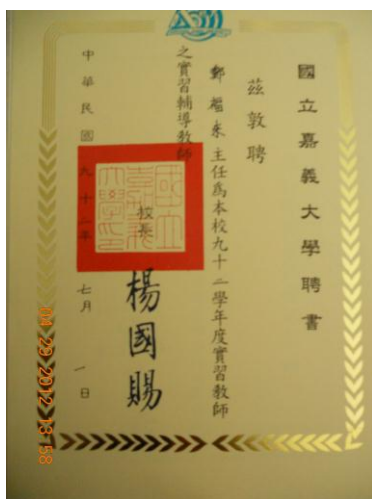 國立嘉義大學聘書
茲敦聘
主任為本校九十二學年度實習教師
之實習輔導教師
校長
楊國賜
中華民國九十二年七月一日
04 20 2012 13:58